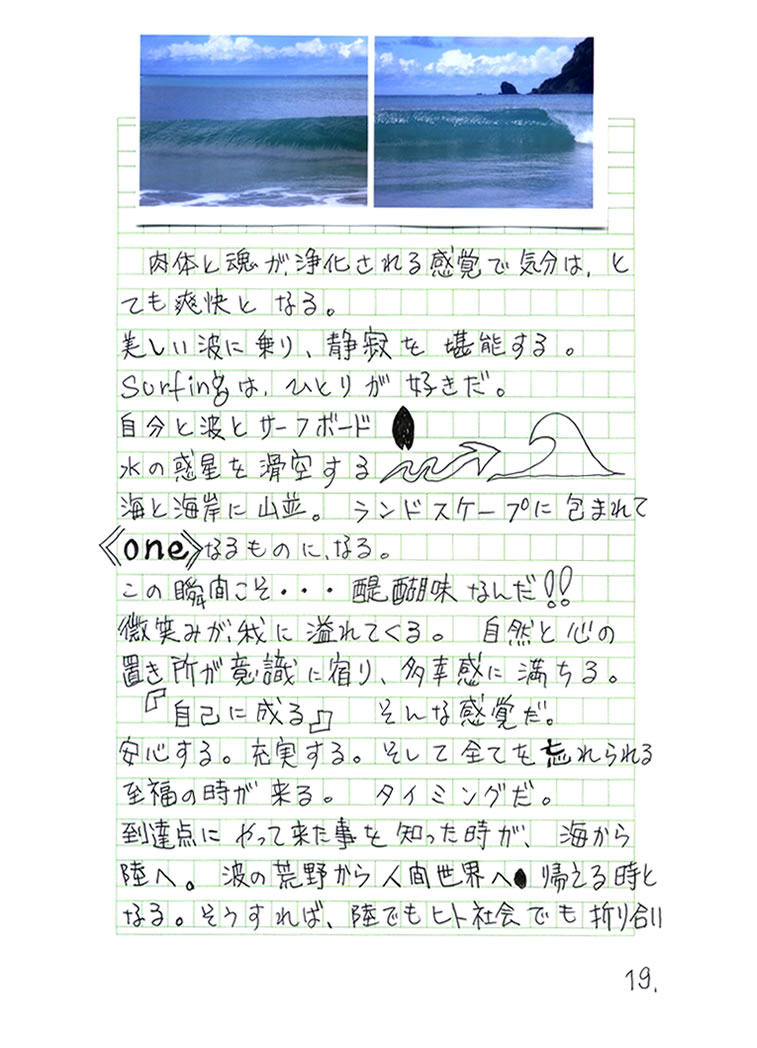 肉体と魂が浄化される感覚で気分は、と
ても爽快となる。
美しい波に乗り、静寂を堪能する。
Surfingは、ひとりが好きだ。
自分と波とサーフボード
水の惑星を滑空する
海と海岸に山並。ランドスケープに包まれて
《one》なるものに、なる。
この瞬間こそ・・・醍醐味なんだ!!
微笑みが、我に溢れてくる。自然と心の
置き所が意識に宿り、多幸感に満ちる。
『自己に成る』そんな感覚だ。
安心する。充実する。そして全てを忘れられる
至福の時が来る。タイミングだ。
到達点にやって来た事を知った時が、海から
陸へ。波の荒野から人間世界へ 帰える時と
なる。そうすれば、陸でもヒト社会でも折り合い
19.